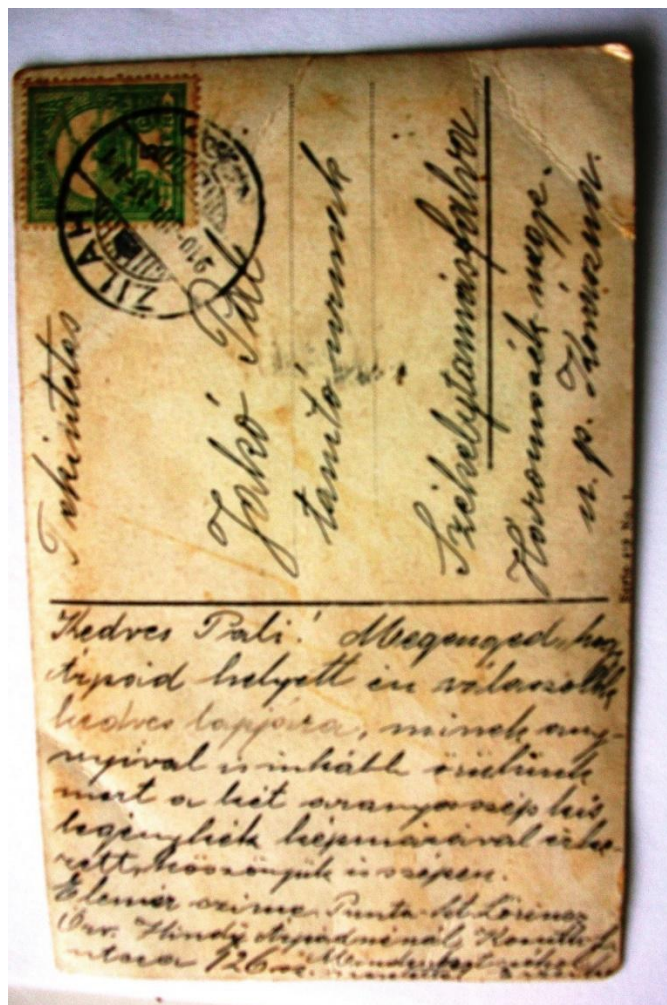 ZILAH
910
Tekintetes
Jakó Pál
tanító urnak
Székelytamásfalva
Háromszék megye.
u. p. Kovászna.
Kedves Pali! Megenged, hogy
Árpád helyett én válaszolok
kedves lapjára, minek any-
nyival is inkább örülünk
mert a két aranyosszép kis
legénykék képmásával érke-
zett, köszönjük is szépen.
Elemér czime Puszta-Szt Lőrincz
Özv. Hindy Árpádnénál, Kossuth L.
utcza 126